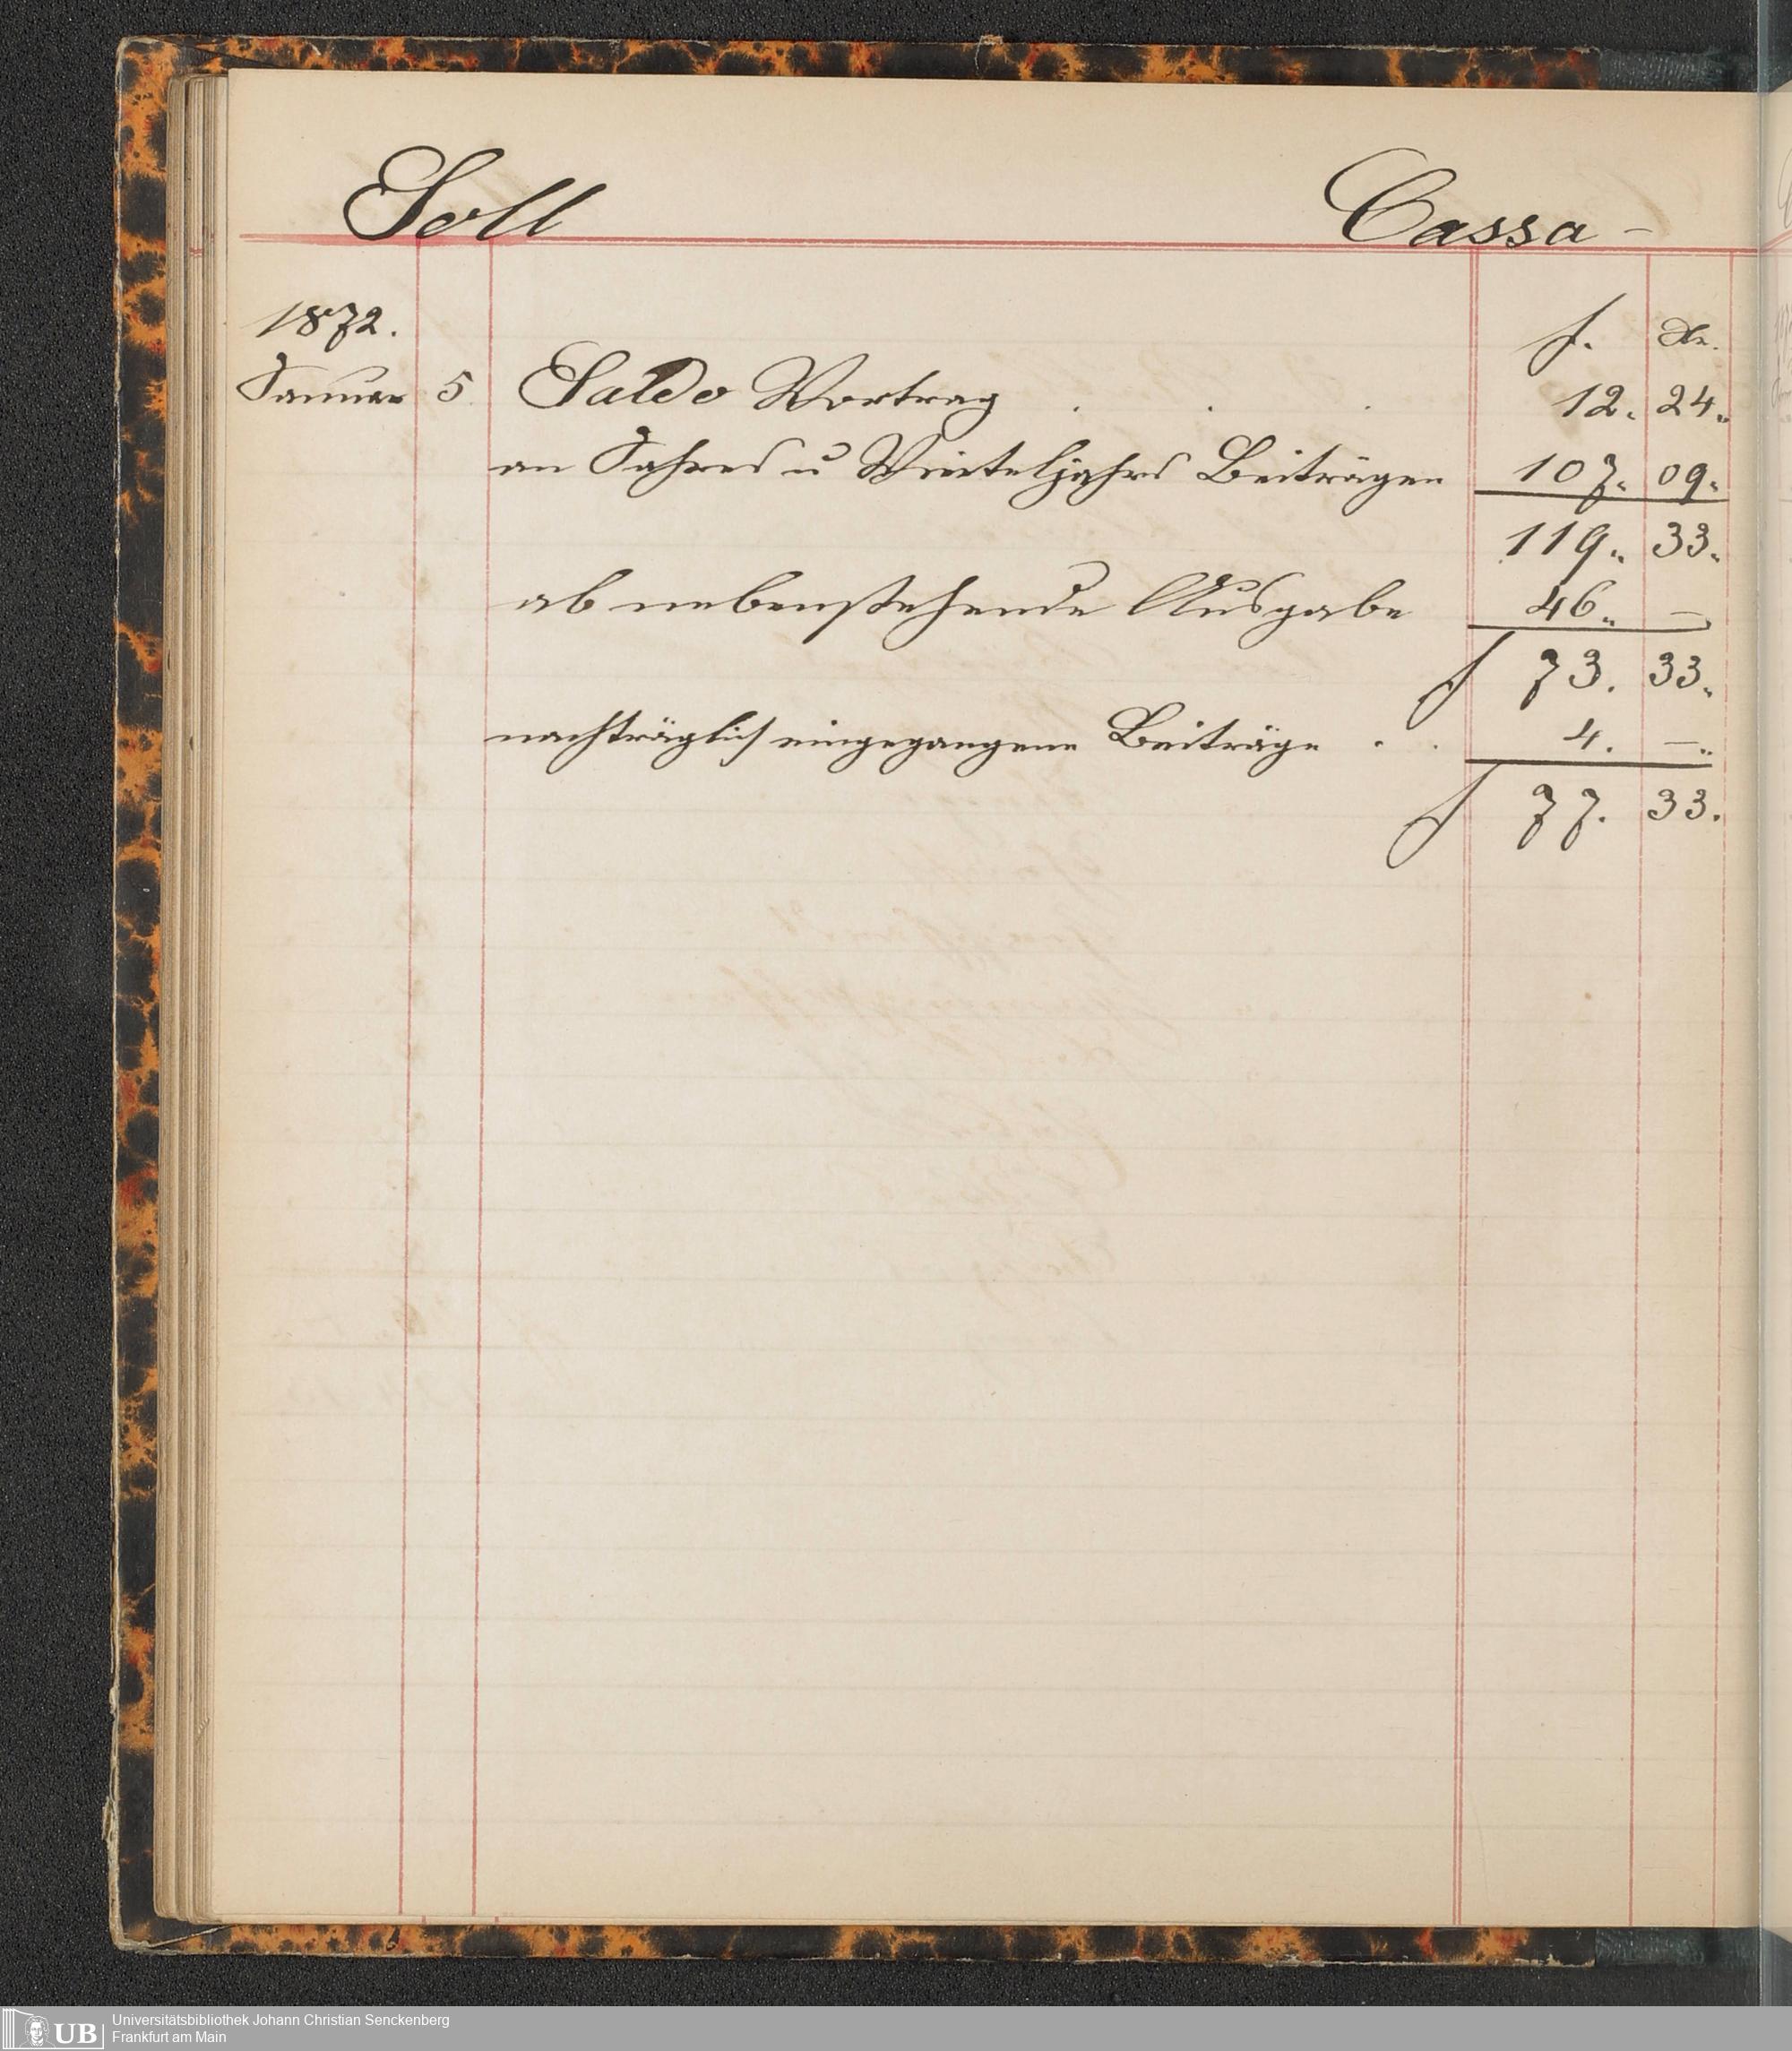 Soll Cassa-
1872. f. Xr.
Januar 5 Saldo Vortrag . . . 12. 24.
an Jahres u Vierteljahrs Beiträgen 107. 09.
119. 33.
ab nebenstehende Ausgabe 46. —
f 73. 33.
nachträglich eingegangene Beiträge . . 4. —
f 77. 33.
UB Universitätsbibliothek Johann Christian Senckenberg
Frankfurt am Main